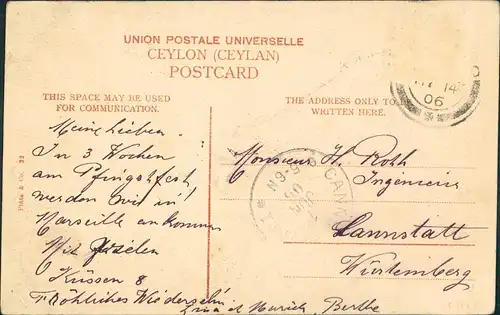 UNION POSTALE UNIVERSELLE
CEYLON (CEYLAN)
POSTCARD
THIS SPACE MAY BE USED
FOR COMMUNICATION.
THE ADDRESS ONLY TO BE
WRITTEN HERE.
14
06
Meine Lieben.
In 3 Wochen
am Pfingstfest
werden wir in
Marseille ankommen
Mit vielen
Küssen &
Fröhliches Wiedersehn
Lina et Marich, Berthe
Monsieur H. Roth
Ingenieur
Cannstatt
Würtemberg
CANN
Plâté & Co. 32